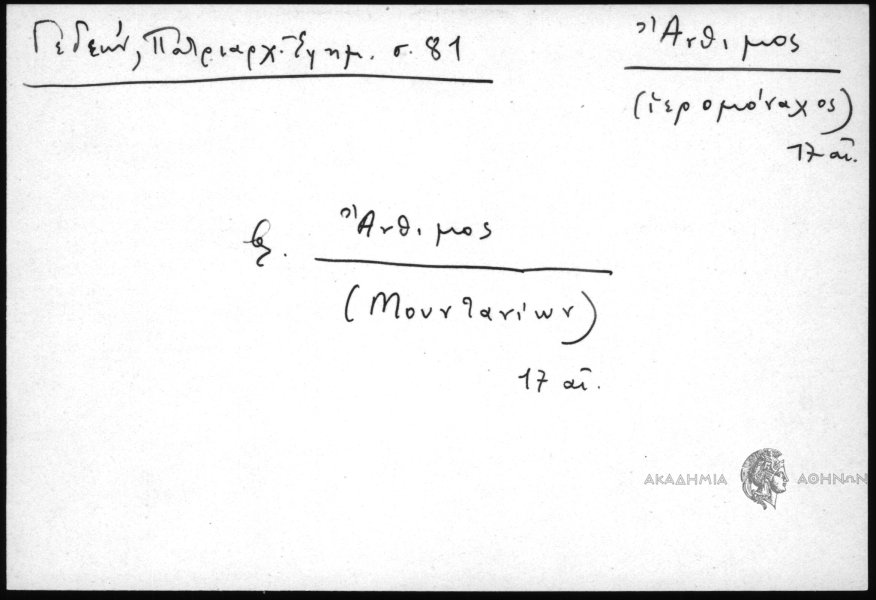 Γεδεών, Πατριαρχ. Ἐφημ. σ. 81
Ἄνθιμος
(ἱερομόναχος)
17 αἰ.
βλ. Ἄνθιμος
(Μουντανίων)
17 αἰ.
ΑΚΑΔΗΜΙΑ ΑΘΗΝΩΝ